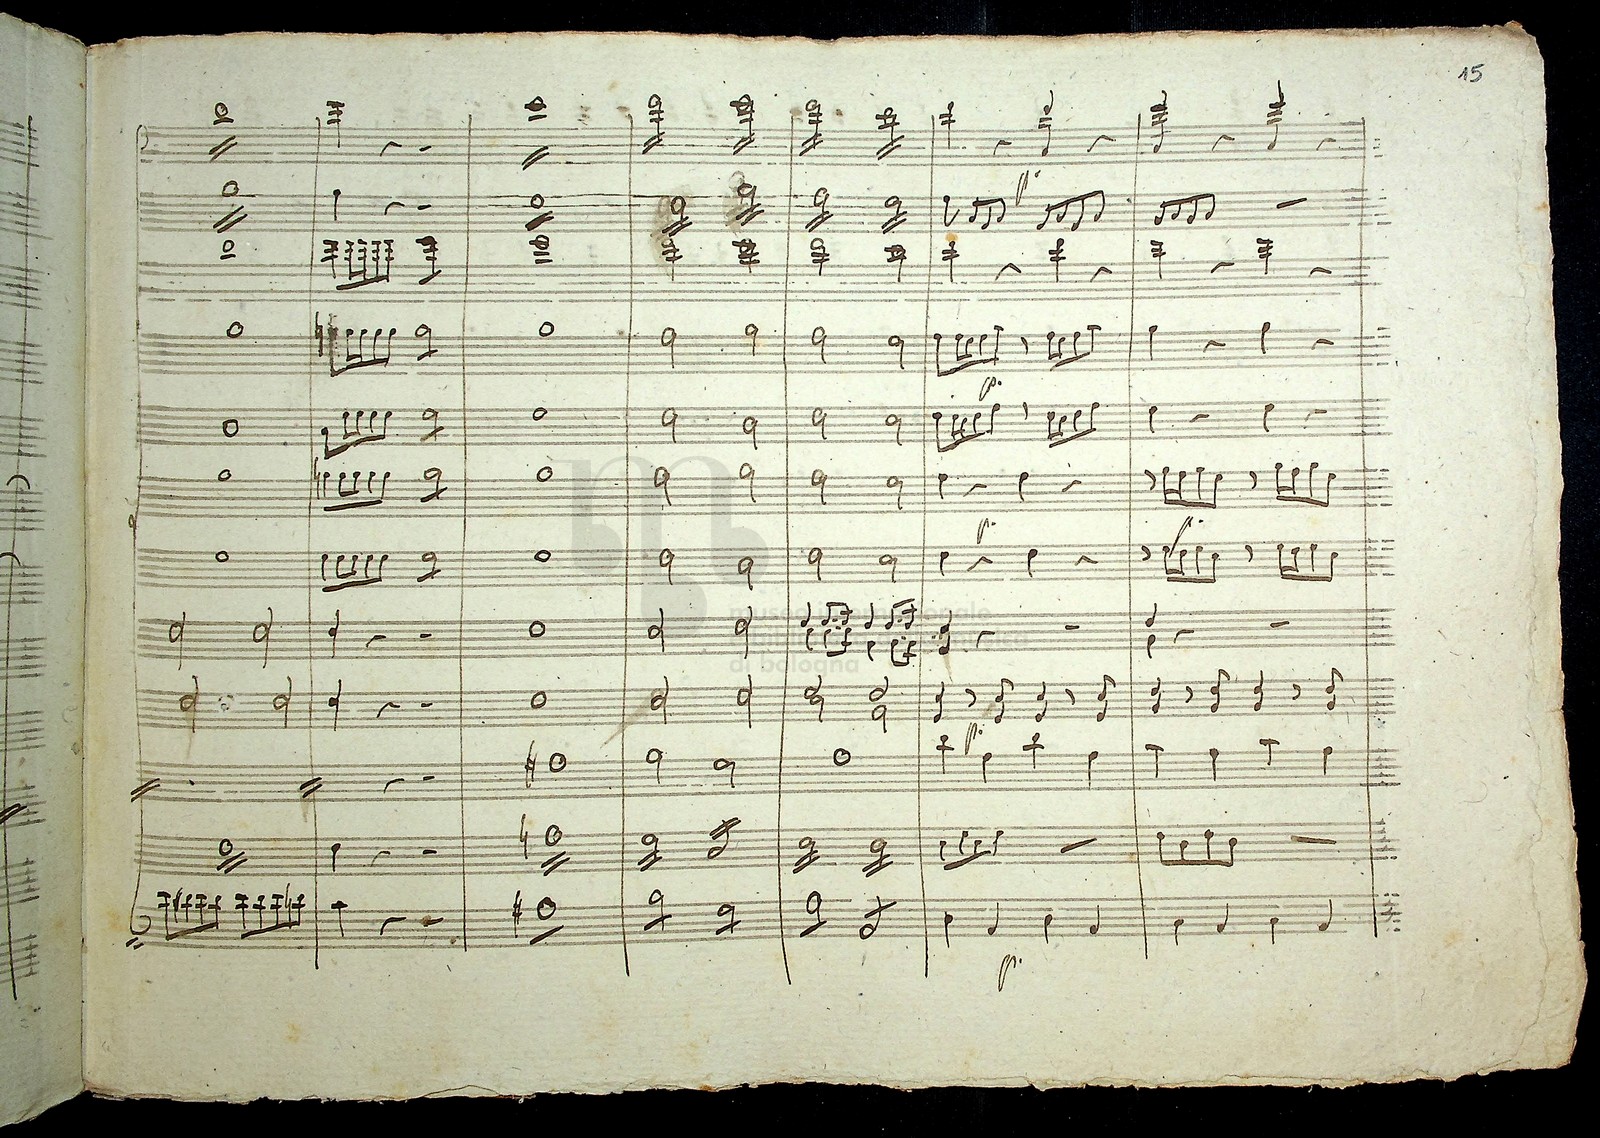 15
p.
p.
p.
p.
p.
p.
museo internazionale
e biblioteca della musica
di bologna